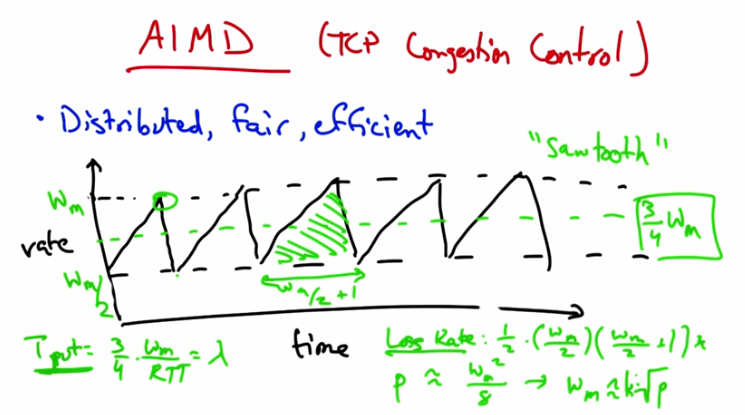 AIMD (TCP Congestion Control)
• Distributed, fair, efficient
"Sawtooth"
Wm
3/4 Wm
rate
Wm/2
Wm/2 + 1
Tput = 3/4 · Wm/RTT = λ
time
Loss Rate: 1/2 · (Wm/2)(Wm/2 + 1) +
p ≈ Wm²/8 → Wm ≈ k·√p